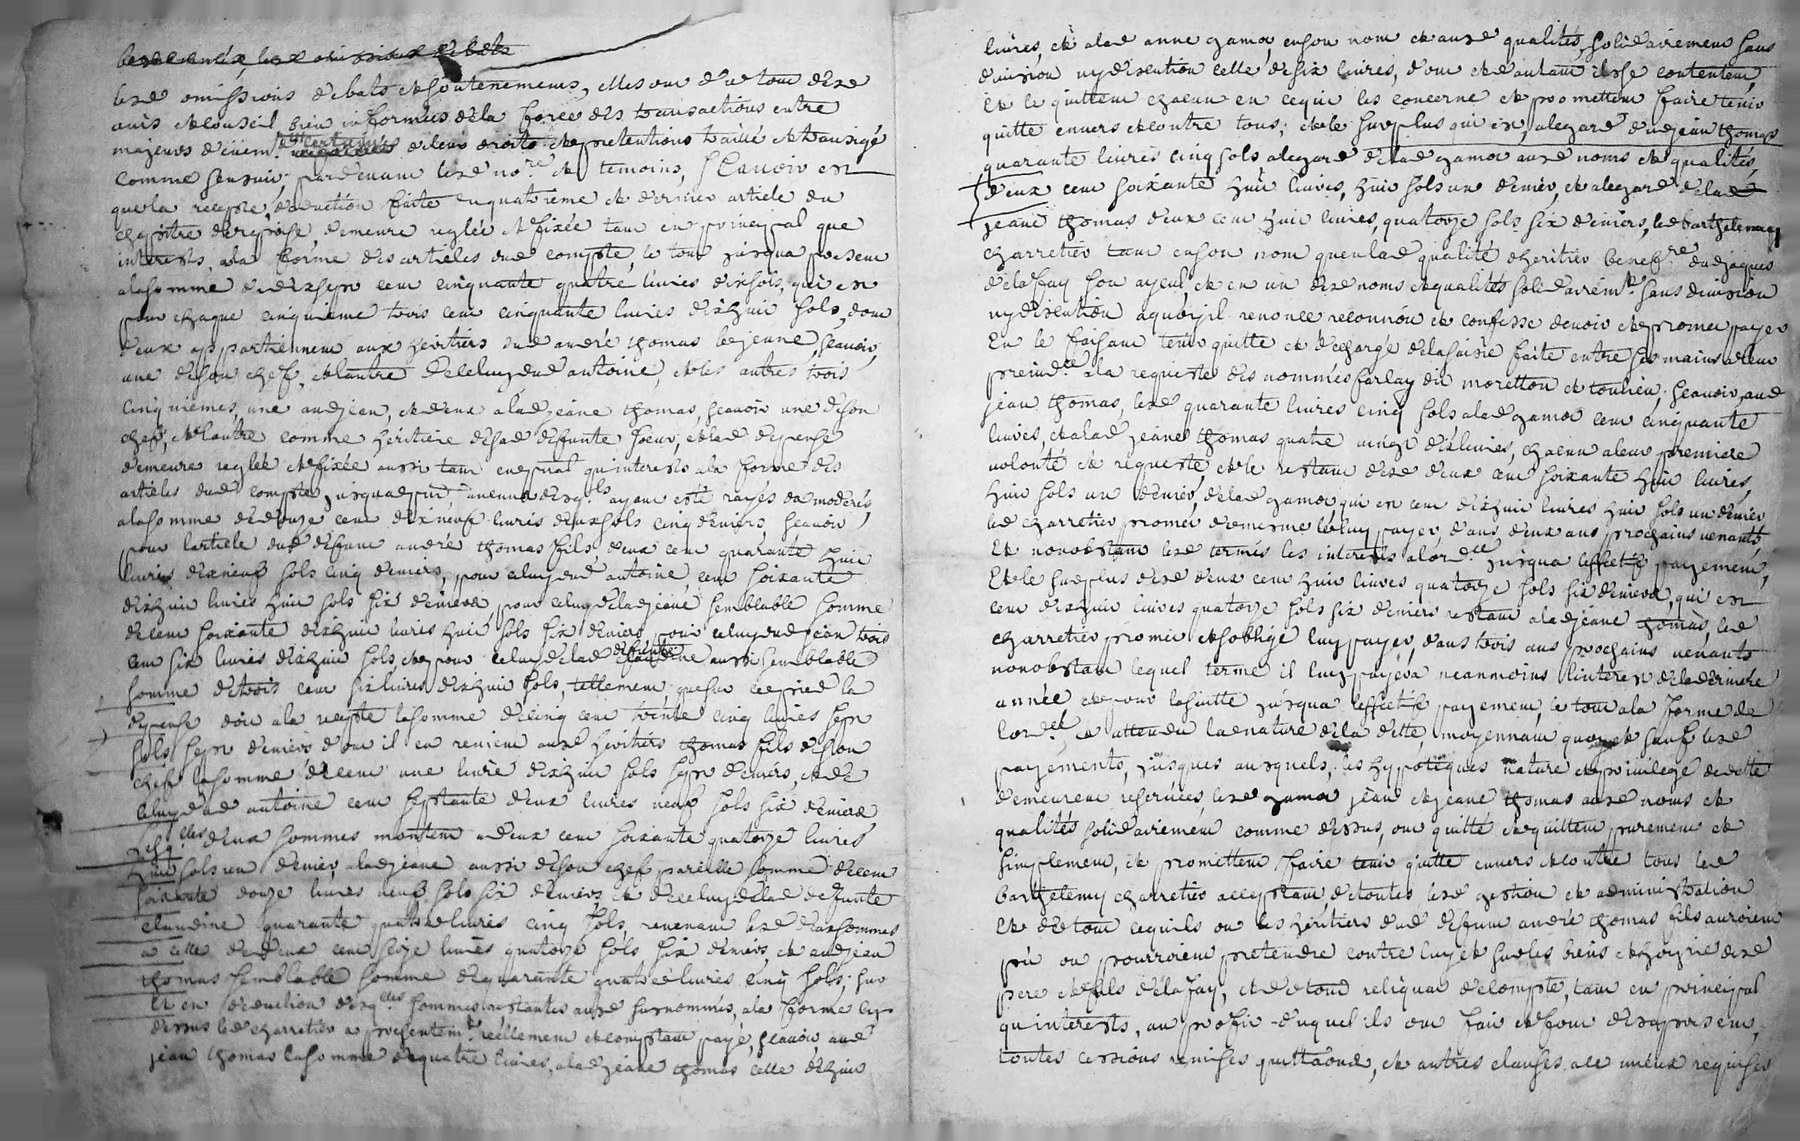 lesd omissions debats et soutenemens, elles ont de tout desd
avis et conseil bien informées de la force des transactions entre
majeurs deuem.t certiorés de leurs droits et pretentions traitté et transigé
comme sensuit, pardevant lesd no.re et temoins, Scavoir est
que la recepte, deduction faitte du quatrieme et dernier article du
chapitre de reprise, demeure reglée et fixée tant en principal que
interests, a la forme des articles dud compte, le tout jusqua present
a la somme de dix sept cent cinquante quatre livres dix sols, qui est
pour chaque cinquieme trois cent cinquante livres dix huit sols, dont
deux appartiennent aux heritiers dud andré thomas le jeune, scavoir
une de son chef, et lautre de celuy dud antoine, et les autres trois
cinquiemes, une aud jean, et deux a lad jeane thomas, scavoir une de son
chef, et lautre comme heritiere de sad defunte soeur, et lad depense
demeure reglée et fixée aussi tant en p.nal quinterests a la forme des
articles dud compte, jusqua pnt, aucuns desq.ls ayant esté rayés ou moderés,
a la somme de douze cent dix neuf livres deux sols cinq deniers, scavoir
pour larticle dud defunt andré thomas fils deux cent quarante huit
livres dix neuf sols cinq deniers, pour celuy dud antoine, cent soixante
dix huit livres huit sols six deniers, pour celuy de lad jeane semblable somme
de cent soixante dix huit livres huit sols six deniers, pour celuy dud jean trois
cent six livres dix huit sols, et pour celuy de lad defunte claudine aussi semblable
somme de trois cent six livres dix huit sols, tellement que sur ce pied la
depense doit a la recepte la somme de cinq cent trente cinq livres sept
sols sept deniers dont il en revient auxd heritiers thomas fils de son
chef la somme de cent une livre dix huit sols sept deniers, et de
celuy dud antoine cent septante deux livres neuf sols six deniers
lesq.lles deux sommes montent a deux cent soixante quatorze livres
huit sols un denier, a lad jeane aussi de son chef pareille somme de cent
soixante douze livres neuf sols six deniers, et de celuy de lad defunte
claudine quarante quatre livres cinq sols, revenant lesd deux sommes
a celle de deux cent seize livres quatorze sols six deniers, et aud jean
thomas semblable somme de quarante quatre livres cinq sols; sur
et en deduction desq.lles sommes restantes auxd surnommés, a la forme cy
dessus led charretier a presentem.t reellement et comptant payé, scavoir, aud
jean thomas la somme de quatre livres, a lad jeane thomas celle de huit
livres, et a lad anne gamot, en son nom et auxd qualités, solidairement sans
division ny discution celle de six livres, dont et dautant ils se contentent,
et le quittent chacun en ce qui les concerne et promettent faire tenir
quitte envers et contre tous; et le surplus qui est, a legard dud jean thomas
quarante livres cinq sols a legard de lad gamot auxd noms et qualités,
deux cent soixante huit livres, huit sols un denier, et a legard de lad
jeane thomas deux cent huit livres, quatorze sols six deniers, led barthelemy
charretier tant en son nom quen lad qualité dheritier benef.re dud jaques
delafay son ayeul, et en un desd noms et qualités solidairem.t sans division
ny discution a quoy il renonce reconnoit et confesse devoir et promet payer
en le faisant tenir quitte et dechargé de la saisie faite entre ses mains
a la requeste des nommés farlay dit moretton et toulieu, scavoir, aud
jean thomas, lesd quarante livres cinq sols a lad gamot cent cinquante
livres, et a lad jeane thomas quatre vingt dix livres, chacun a leur premiere
volonté et requeste et le restant desd deux cent soixante huit livres,
huit sols un denier, de lad gamot qui est cent dix huit livres huit sols un denier
led charretier promet de mesme le luy payer, dans deux ans prochains venants,
et nonobstant lesd termes les interests a lord.ce jusqua leffectif payement,
et le surplus desd deux cent huit livres quatorze sols six deniers, qui est
cent dix huit livres quatorze sols six deniers restant a lad jeane thomas, led
charretier promet et soblige luy payer, dans trois ans prochains venants
nonobstant lequel terme il luy payera neanmoins linterest de la derniere
année et pour la suitte jusqua leffectif payement, le tout a la forme de
lord.ce, et attendu la nature de la dette, moyennant quoy et sauf lesd
payements, jusques auxquels, les hypoteques nature et privilege de dette
demeurent reservées lesd gamot jean et jeane thomas auxd noms et
qualités solidairement comme dessus, ont quitté et quittent purement et
simplement, et promettent faire tenir quitte envers et contre tous led
barthelemy charretier acceptant, de toutes lesd gestion et administration
et de tout ce quils ou les heritiers dud defunt andré thomas fils auroient
pû ou pourroient pretendre contre luy et sur les biens et hoyrie desd
pere et fils delafay, et de tout reliquat de compte, tant en principal
quinterests, au profit duquel ils ont fait et font des a present,
toutes cessions remises quittances, et autres clauses a ce mieux requises